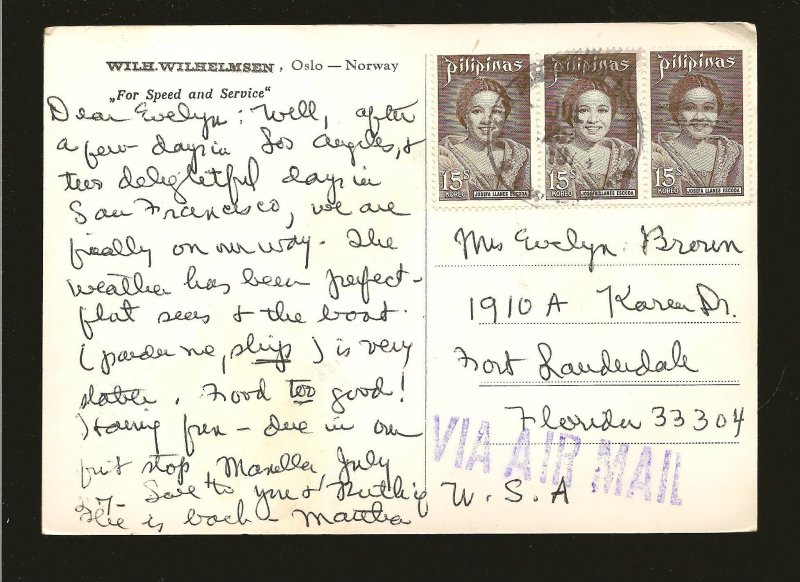 WILH. WILHELMSEN, Oslo — Norway
„For Speed and Service"
Dear Evelyn: Well, after
a few days in Los Angeles, &
two delightful days in
San Francisco, we are
finally on our way. The
weather has been perfect -
flat seas & the boat
(pardon me, ship) is very
stable. Food too good!
Having fun - due in our
first stop, Manella July
7 - Love to you & Ruthie if
she is back - Martha
pilipinas pilipinas pilipinas
15s 15s 15s
KOREO JOSEFA LLANES ESCODA KOREO JOSEFA LLANES ESCODA KOREO JOSEFA LLANES ESCODA
Mrs Evelyn Brown
1910 A Karen Dr.
Fort Lauderdale
Florida 33304
U.S.A
VIA AIR MAIL